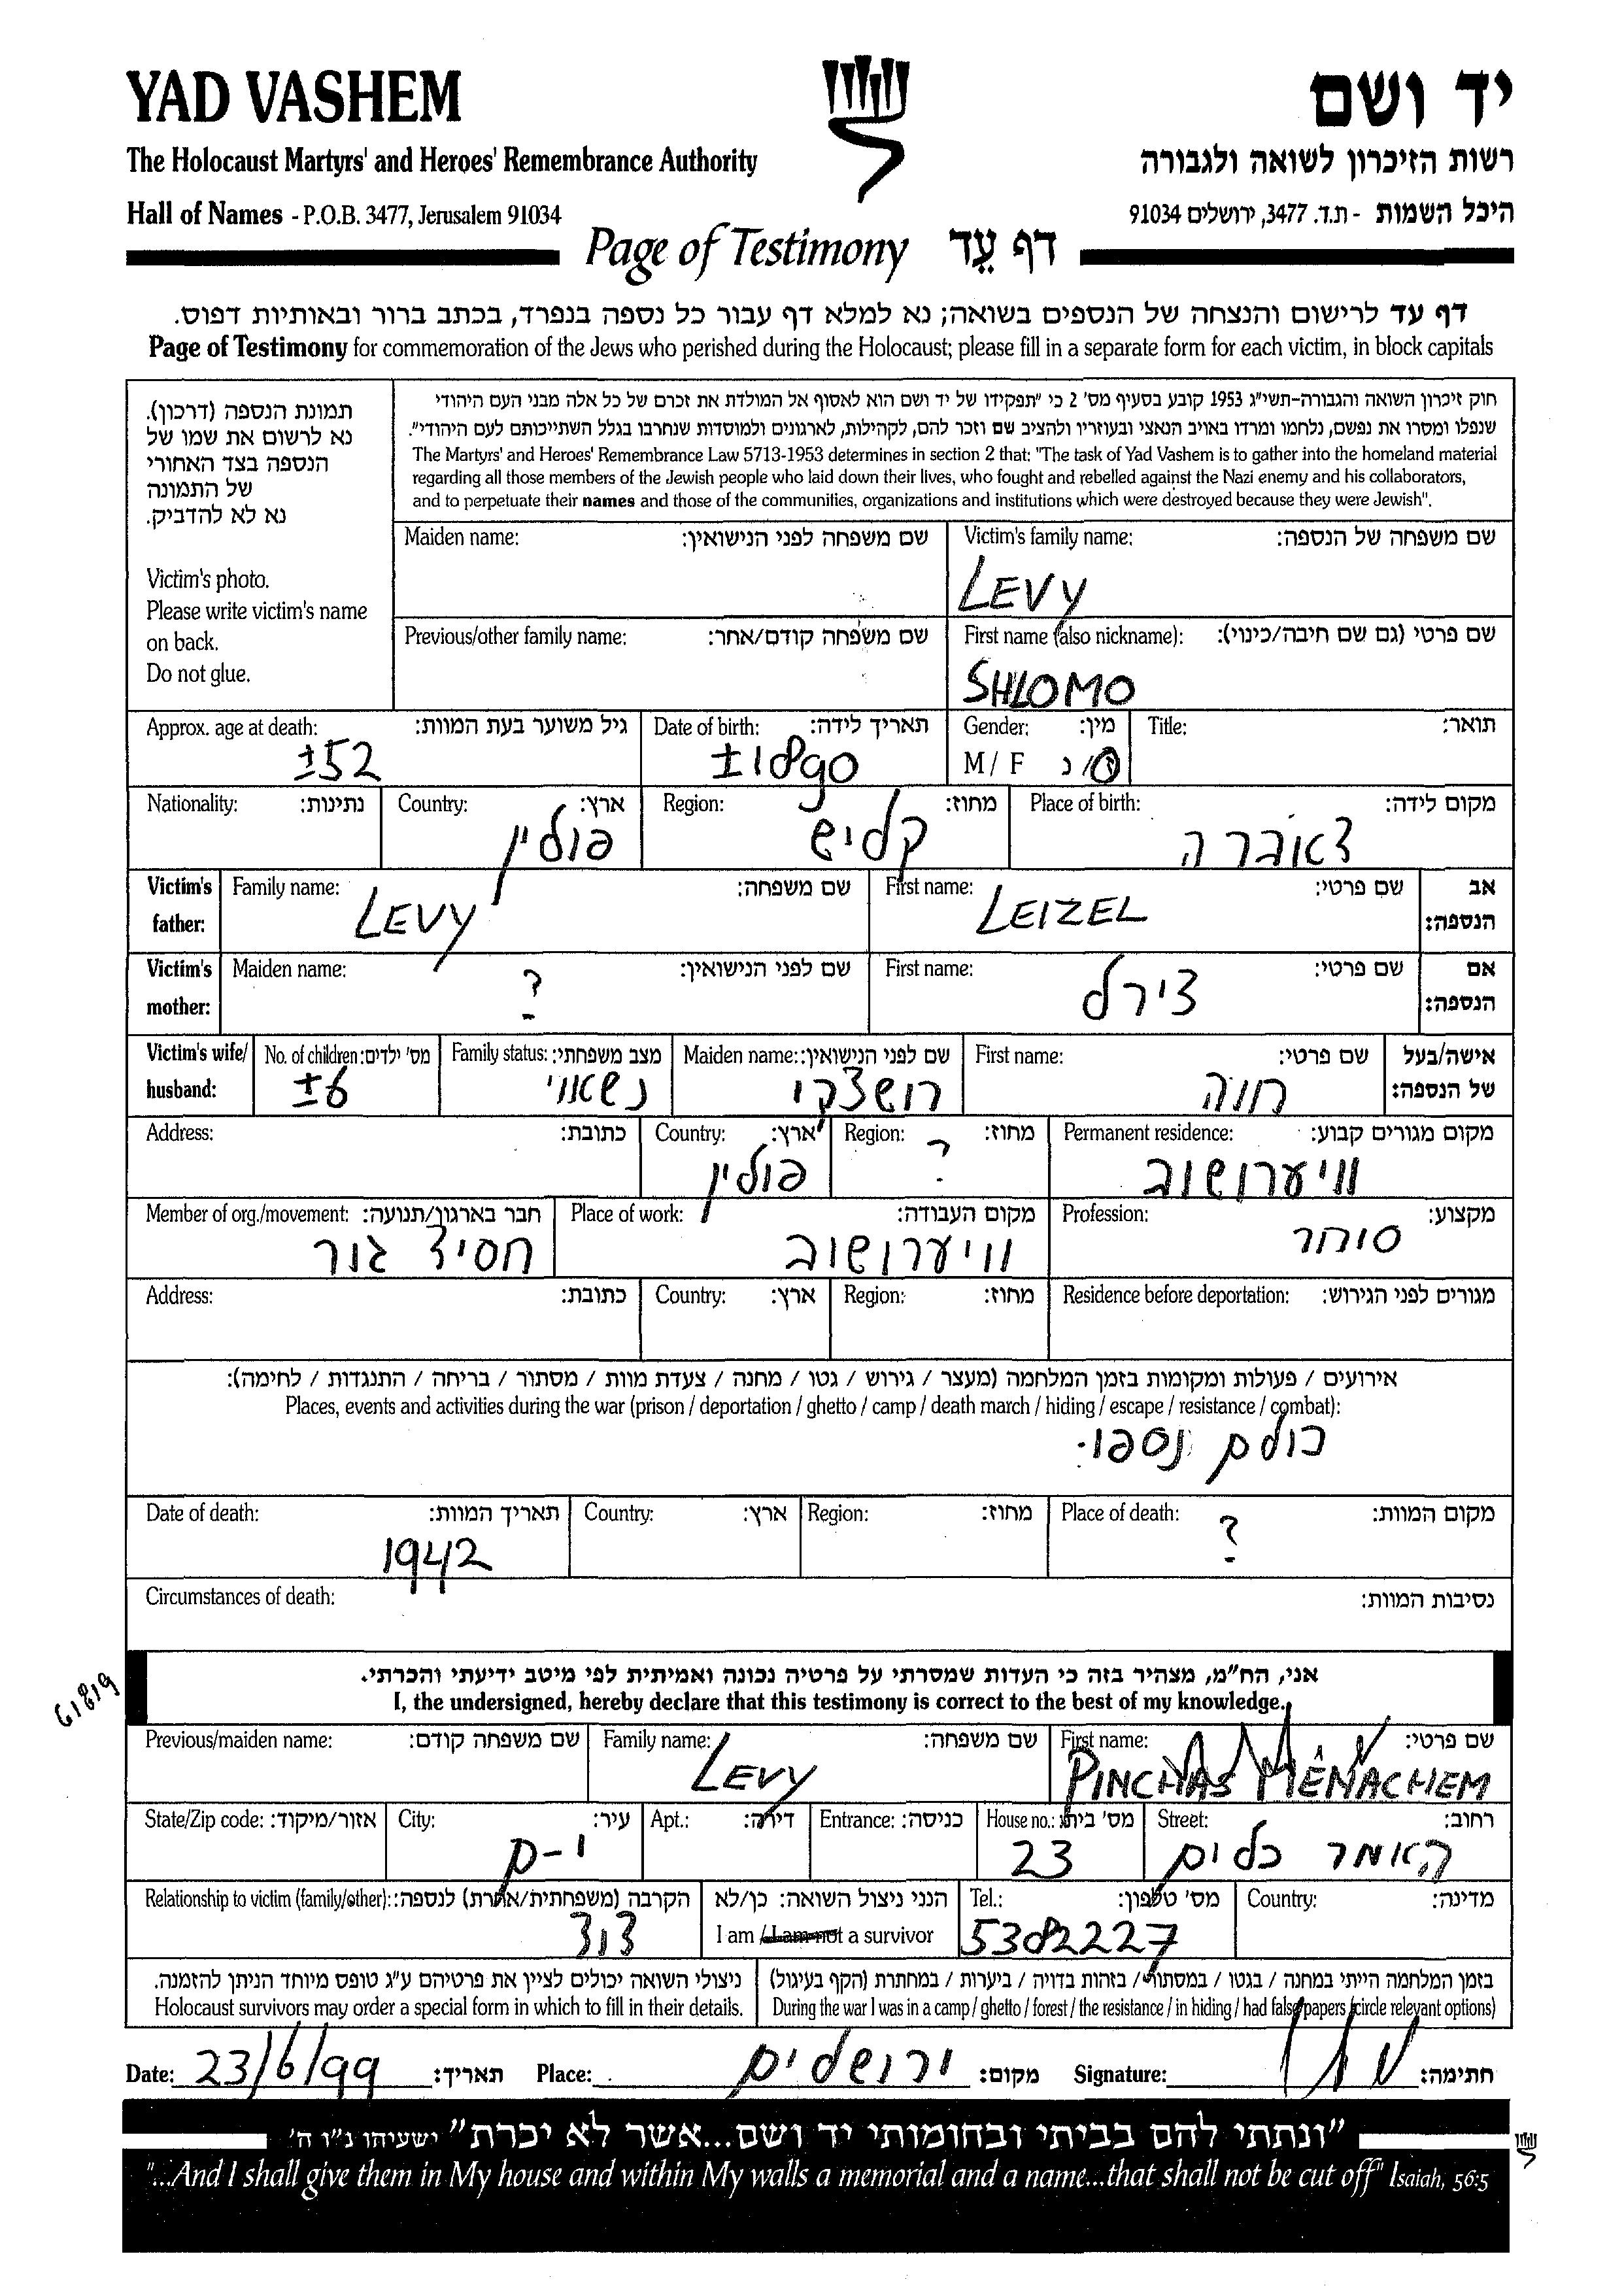 YAD VASHEM
יד ושם
The Holocaust Martyrs' and Heroes' Remembrance Authority
רשות הזיכרון לשואה ולגבורה
Hall of Names - P.O.B. 3477, Jerusalem 91034
היכל השמות - ת.ד. 3477, ירושלים 91034
Page of Testimony דף עֵד
דף עד לרישום והנצחה של הנספים בשואה; נא למלא דף עבור כל נספה בנפרד, בכתב ברור ובאותיות דפוס.
Page of Testimony for commemoration of the Jews who perished during the Holocaust; please fill in a separate form for each victim, in block capitals
תמונת הנספה (דרכון).
נא לרשום את שמו של
הנספה בצד האחורי
של התמונה
נא לא להדביק.
Victim's photo.
Please write victim's name
on back.
Do not glue.
חוק זיכרון השואה והגבורה-תשי"ג 1953 קובע בסעיף מס' 2 כי "תפקידו של יד ושם הוא לאסוף אל המולדת את זכרם של כל אלה מבני העם היהודי
שנפלו ומסרו את נפשם, נלחמו ומרדו באויב הנאצי ובעוזריו ולהציב שם וזכר להם, לקהילות, לארגונים ולמוסדות שנחרבו בגלל השתייכותם לעם היהודי".
The Martyrs' and Heroes' Remembrance Law 5713-1953 determines in section 2 that: "The task of Yad Vashem is to gather into the homeland material
regarding all those members of the Jewish people who laid down their lives, who fought and rebelled against the Nazi enemy and his collaborators,
and to perpetuate their names and those of the communities, organizations and institutions which were destroyed because they were Jewish".
Maiden name: שם משפחה לפני הנישואין:
Victim's family name: שם משפחה של הנספה:
LEVY
Previous/other family name: שם משפחה קודם/אחר:
First name (also nickname): שם פרטי (גם שם חיבה/כינוי):
SHLOMO
Approx. age at death: גיל משוער בעת המוות:
±52
Date of birth: תאריך לידה:
±1890
Gender: מין:
M / F ז/נ
Title: תואר:
Nationality: נתינות:
Country: ארץ:
פולין
Region: מחוז:
קליש
Place of birth: מקום לידה:
דאברה
Victim's father:
Family name: שם משפחה:
LEVY
First name: שם פרטי:
LEIZEL
אב הנספה:
Victim's mother:
Maiden name: שם לפני הנישואין:
?
First name: שם פרטי:
צירל
אם הנספה:
Victim's wife/ husband:
No. of children: מס' ילדים:
±6
Family status: מצב משפחתי:
נשאוי
Maiden name: שם לפני הנישואין:
First name: שם פרטי:
חנה
אישה/בעל של הנספה:
Address: כתובת:
Country: ארץ:
פולין
Region: מחוז:
?
Permanent residence: מקום מגורים קבוע:
וויערושוב
Member of org./movement: חבר בארגון/תנועה:
חסיד גור
Place of work: מקום העבודה:
וויערושוב
Profession: מקצוע:
סוחר
Address: כתובת:
Country: ארץ:
Region: מחוז:
Residence before deportation: מגורים לפני הגירוש:
אירועים / פעולות ומקומות בזמן המלחמה (מעצר / גירוש / גטו / מחנה / צעדת מוות / מסתור / בריחה / התנגדות / לחימה):
Places, events and activities during the war (prison / deportation / ghetto / camp / death march / hiding / escape / resistance / combat):
כולם נספו.
Date of death: תאריך המוות:
1942
Country: ארץ:
Region: מחוז:
Place of death: מקום המוות:
?
Circumstances of death: נסיבות המוות:
61819
אני, הח"מ, מצהיר בזה כי העדות שמסרתי על פרטיה נכונה ואמיתית לפי מיטב ידיעתי והכרתי.
I, the undersigned, hereby declare that this testimony is correct to the best of my knowledge.
Previous/maiden name: שם משפחה קודם:
Family name: שם משפחה:
LEVY
First name: שם פרטי:
PINCHAS MENACHEM
State/Zip code: אזור/מיקוד:
City: עיר:
י-ם
Apt.: דירה:
Entrance: כניסה:
House no.: מס' בית:
23
Street: רחוב:
Relationship to victim (family/other): הקרבה (משפחתית/אחרת) לנספה:
דוד
הנני ניצול השואה: כן/לא
I am / I am not a survivor
Tel.: מס' טלפון:
5382227
Country: מדינה:
ניצולי השואה יכולים לציין את פרטיהם ע"ג טופס מיוחד הניתן להזמנה.
Holocaust survivors may order a special form in which to fill in their details.
בזמן המלחמה הייתי במחנה / בגטו / במסתור / בזהות בדויה / ביערות / במחתרת (הקף בעיגול)
During the war I was in a camp / ghetto / forest / the resistance / in hiding / had false papers (circle relevant options)
Date: 23/6/99 תאריך:
Place: ירושלים מקום:
Signature: חתימה:
"ונתתי להם בביתי ובחומותי יד ושם...אשר לא יכרת" ישעיהו נ"ו ה'
"...And I shall give them in My house and within My walls a memorial and a name...that shall not be cut off" Isaiah, 56:5